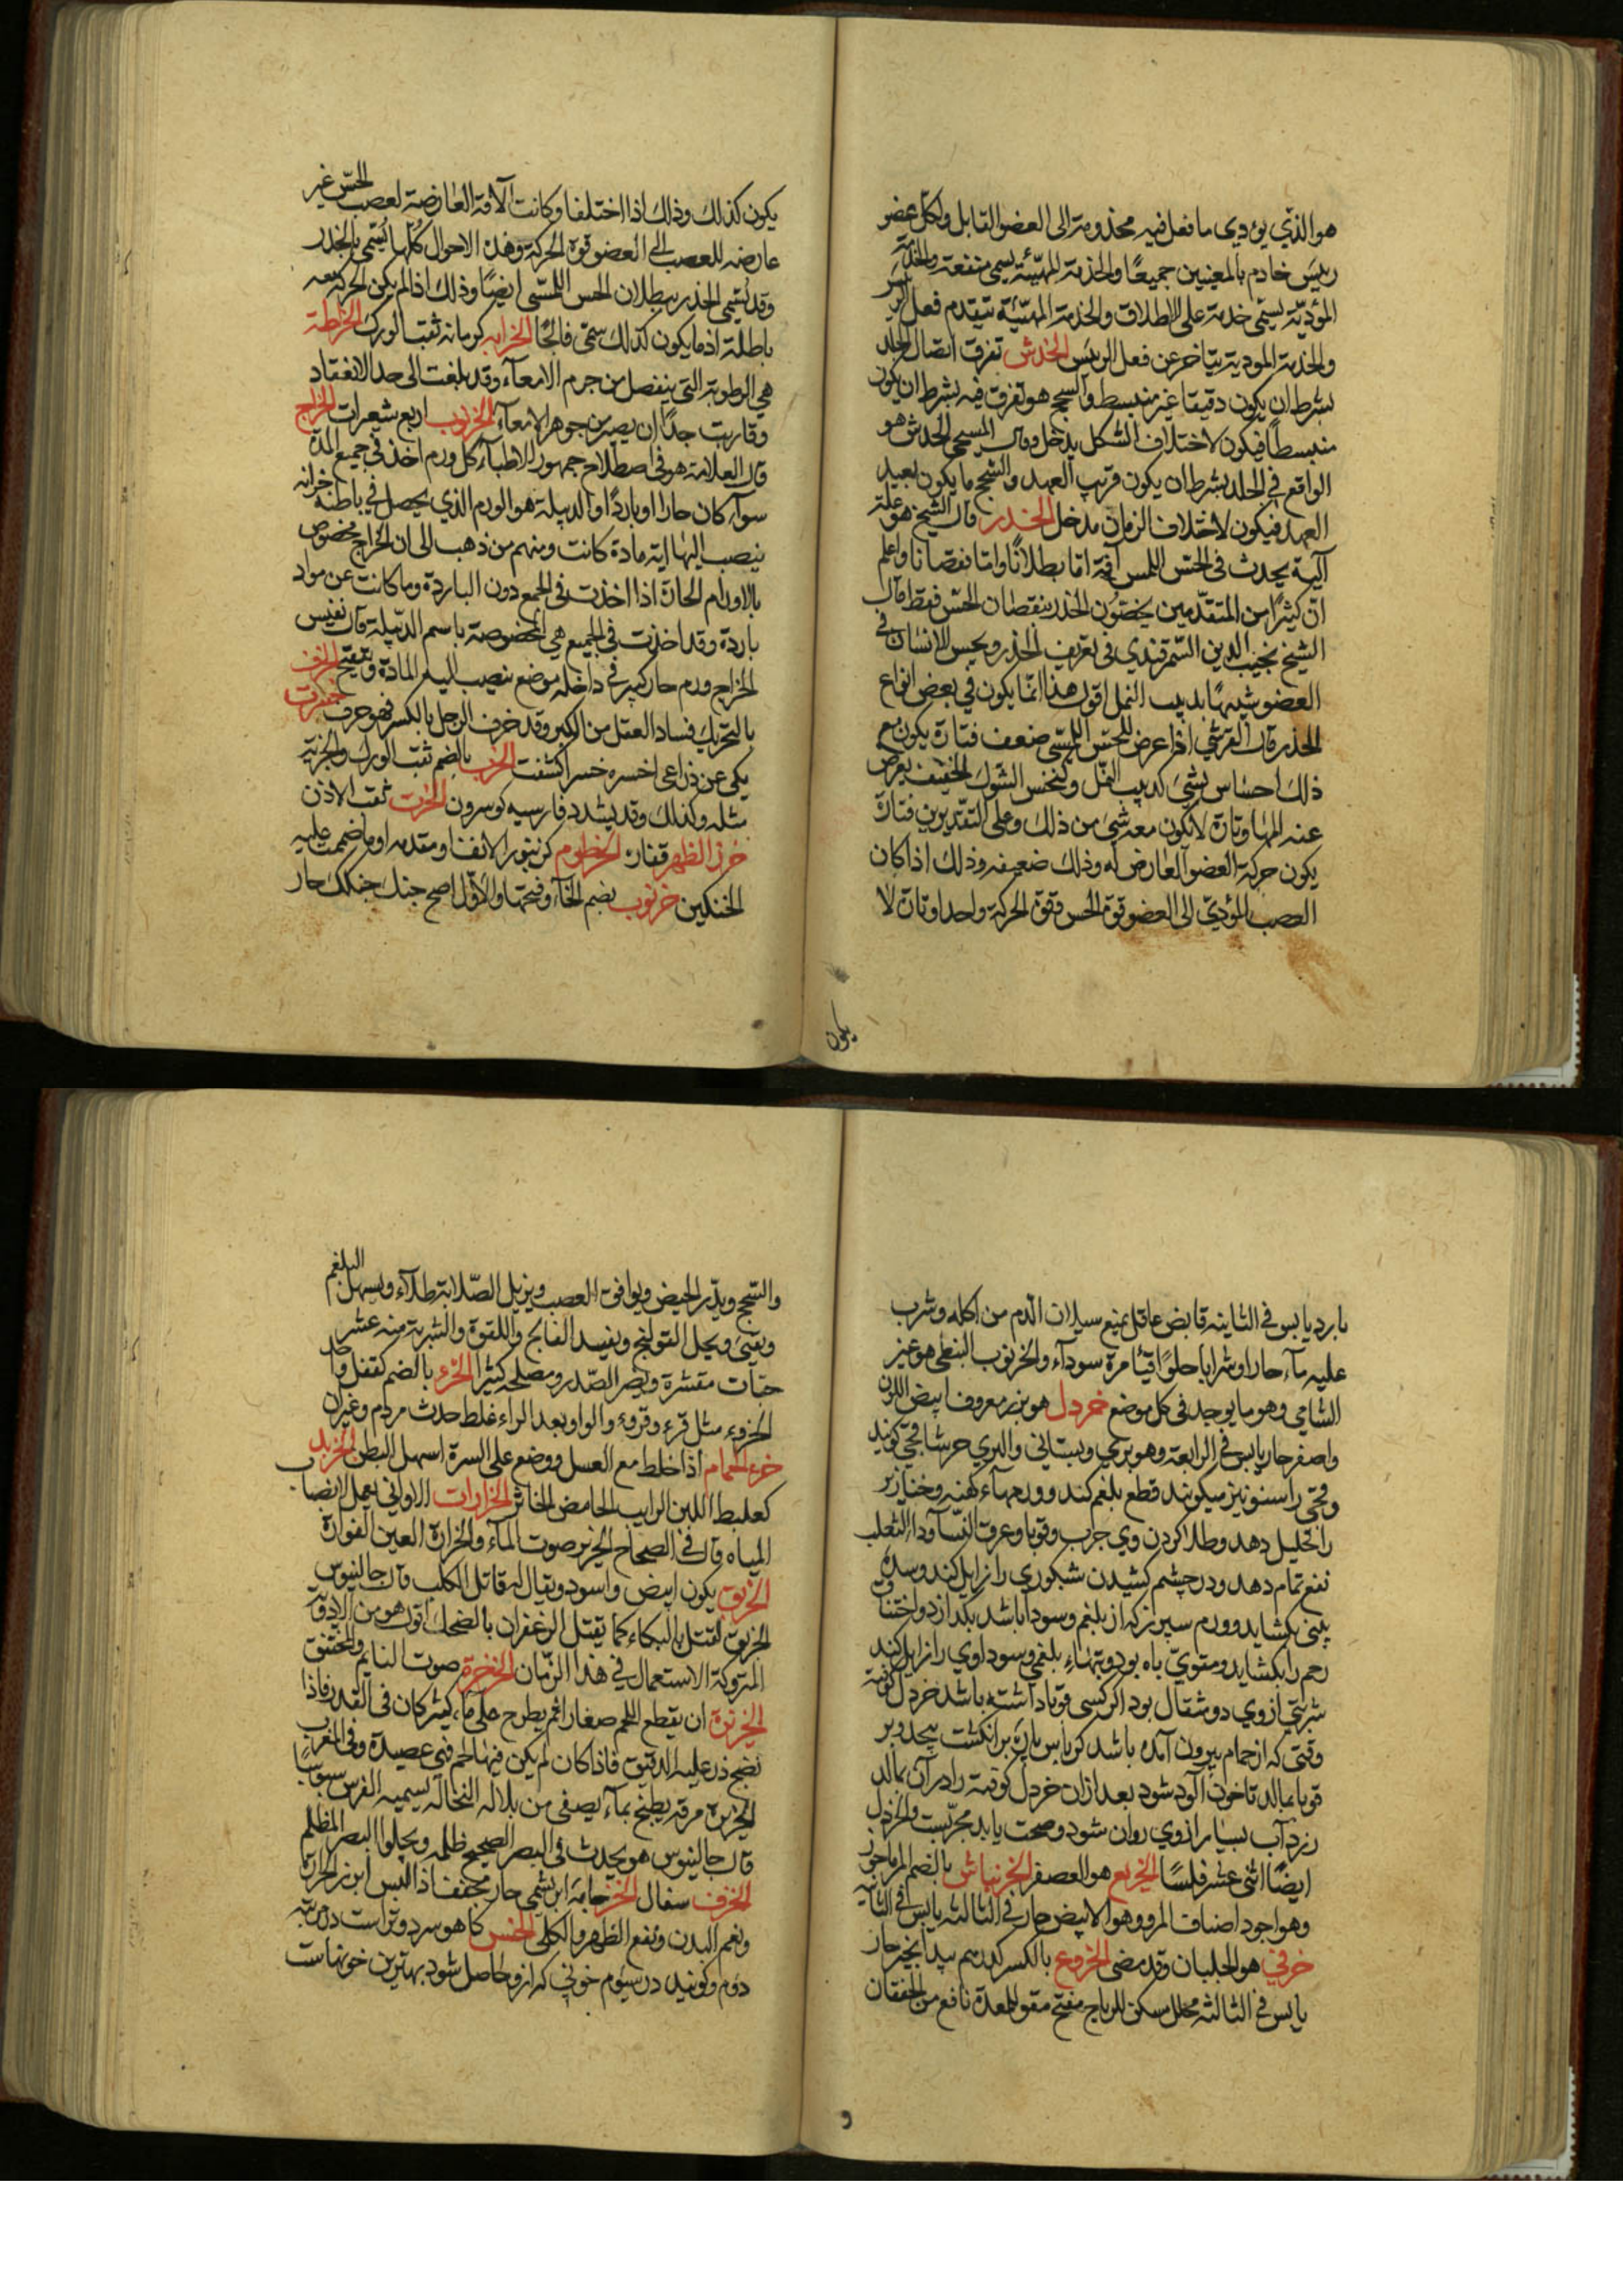 هو الذي يؤدي ما فعل فيه مخدومة الى العضو القابل ولكل عضو
رييس خادم بالمعنيين جميعًا والخدمة المهيّئة يسمى منفعة والخدمة
المؤديّة يسمّى خدمة على الاطلاق والخدمة المهيّئة يتقدم فعل الرييس
والخدمة المودية يتاخر عن فعل الرييس الخدش تفرق اتصال الجلد
بشرط ان يكون دقيقا غير منبسط والسحج هو تفرق فيه بشرط ان يكون
منبسطًا فيكون لاختلاف الشكل يدخل وقال المسيحي الخدش هو
الواقع في الجلد بشرط ان يكون قريب العهد والسحج ما يكون بعيد
العهد فيكون لاختلاف الزمان مدخل الخدر قال الشيخ هو علة
آلية يحدث في الحس اللمس آفة اما بطلانًا واما نقصانا واعلم
انّ كثيرًا من المتقدّمين يخصّون الخدر بنقصان الحس فقط قال
الشيخ نجيب الدين السمرقندي في تعريف الخدر ويحس الانسان في
العضو شبيهًا بدبيب النمل اقول هذا انما يكون في بعض انواع
الخدر قال القرشي اذا عرض للحس اللمسى ضعف فتارة يكون مع
ذلك احساس بشئ كدبيب النمل وكنخس الشوك الخفيف يعرض
عنه المها وتارة لا يكون معه شئ من ذلك وعلى التقديرين فتارة
يكون حركة العضو العارض له وذلك ضعيفه وذلك اذا كان
العصب المؤديّ الى العضو قوة الحس وقوة الحركة واحدا وتارة لا
يكون
يكون كذلك وذلك اذا اختلفا وكانت الآفة العارضة لعصب الحس غير
عارضه للعصب الى العضو قوة الحركة وهذه الاحوال كلها يسمى بالخدر
وقد يسمى الخدر ببطلان الحس اللمسى ايضًا وذلك اذا لم يكن الحركة معه
باطلة اذ ما يكون كذلك سمّى فالجًا الخرابه كرمانه ثقب الورك الخراطة
هي الرطوبة التي ينفصل من جرم الامعآء وقد بلغت الى حد الانعقاد
وقاربت جدًا ان يصير من جوهر الامعآء الخروب اربع شعيرات الخراج
قال العلامة هو في اصطلاح جمهور الاطبآء كل ورم اخذ في جميع المدة
سوآء كان حارا او باردًا والدبيلة هو الورم الذي يحصل في باطنه خزانه
ينصب اليها اية مادة كانت ومنهم من ذهب الى ان الخراج مخصوص
بالاورام الحارة اذا اخذت في الجمع دون الباردة وما كانت عن مواد
باردة وقد اخذت في الجميع هي المخصوصة باسم الدبيلة قال نفيس
الخراج ورم حار كبير في داخله موضع ينصب اليه المادة ويتقيح الخرف
بالتحريك فساد العقل من الكبر وقد خرف الرجل بالكسر فهو خرف
يكى عن ذراعى اخسره خسرا كشفت الخرب بالضم ثقب الورك والخربة
مثله وكذلك وقد يشدد فارسيه كوسرون الخرت ثقب الاذن
خرز الظهر فقاره الخرطوم كزنبور الانف او مقدمه او ما ضممت عليه
الحنكين خرنوب بضم الخآء وفتحها والاول اصح جنك جنكك حار
بارد يابس في الثانيه قابض عاقل يمنع سيلان الدم من اكله وشرب
عليه مآء حارا وشرابا حلوًا قيئا مرة سودآء والخرنوب النبطى هو غير
الشامي وهو ما يوجد في كل موضع خردل هو بزر معروف ابيض اللون
واصفر حار يابس في الرابعة وهو بري وبستاني والبري حرشا قچي كويند
وقچى راسنو نيز ميكويند قطع بلغم كند وورمهآء كهنه وخنازير
را تحليل دهد وطلا كردن وي جرب وقوبا وعرق النسآ ودآء الثعلب
نفع تمام دهد ودر چشم كشيدن شبكوري را زايل كند وسده
بينى بكشايد وورم سپرز كه از بلغم وسودا باشد بكدازد واختناق
رحم را بكشايد ومقويّ باه بود وتبهاء بلغمي وسوداوي را زايل كند
شربتى از وي دو مثقال بود اكر كسى قوبا داشته باشد خردل كوفته
وقتى كه از حمام بيرون آمده باشد كرباس پارۀ بر انكشت پيچد وبر
قوبا بمالد تا خون آلود شود بعد از ان خردل كوفته را در آن بمالد
زرد آب بسيار از وي روان شود وصحت يابد مجربست والخردل
ايضًا اثنى عشر فلسًا الخريع هو العصفر الخرنباش بالضم المرماحوز
وهو اجود اصناف المرو وهو الابيض حار في الثالثه يابس في الثآنية
خرفي هو الجلبان وقد مضى الخروع بالكسر كدرهم بيد انجير حار
يابس في الثالثه محلل مسكن للرياح مفتح مقو للمعدة نافع من الخفقان
و
والسحج ويدّر الحيض ويوافق العصب ويزيل الصّلابة طلآء ويسهل البلغم
ويقيئ ويحل القولنج ويفيد الفالج واللقوة والشربة منه عشر
حبّات مقشرة ويضر الصّدر ومصلحه كثيرا الخرء بالضم كقفل واحد
الخروء مثل قرء وقروء والواو بعد الراء غلط حدث مردم وغيران
خرء الحمام اذا خلط مع العسل ووضع على السرة اسهل البطن الخزبد
كعلبط اللبن الرايب الحامض الخاثر الخرارات الاواني يعمل لانصاب
المياه قال في الصحاح الخرير صوت المآء والخرارة العين الفوارة
الخربق يكون ابيض واسود ويقال له قاتل الكلب قال جالينوس
الخربق يقتل بالبكاء كما يقتل الزعفران بالضحك اقول هو من الادوية
المتروكة الاستعمال في هذا الزمان الخرخرة صوت النايم والمختنق
الخزيرة ان يقطع اللحم صغارا ثم يطرح على مآء كثير كان في القدر فاذا
نضج ذر عليه الدقيق فاذا كان لم يكن فيها لحم فهي عصيدة وفي المغرب
الخزيره مرقه يطبخ بمآء يصفى من بلالة النخاله يسميه الفرس سبوسابا
قال جالينوس هو يحدث في البصر الصحيح ظلمه ويجلوا البصر المظلم
الخزف سفال الخز جامۀ ابريشمى حار مجفف اذا البس ابرز الحرارة
ونعم البدن ونفع الظهر والكلى الخس كاهو سرد وتر است در مرتبه
دوم وكويند در سيّوم خونى كه از و حاصل شود بهترين خونها ست